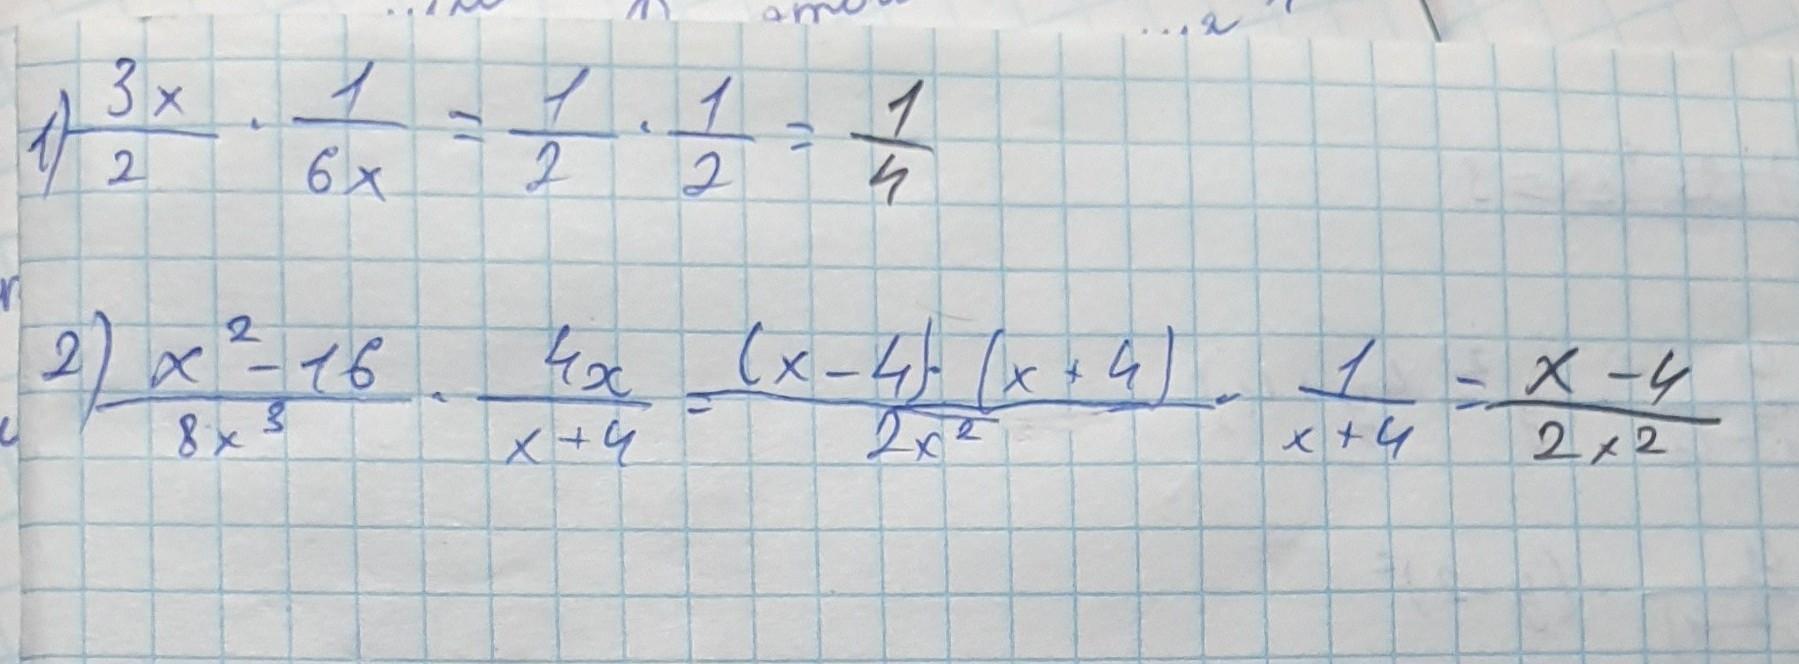 1) 3x/2 · 1/6x = 1/2 · 1/2 = 1/4
2) x²-16/8x³ · 4x/x+4 = (x-4)·(x+4)/2x² · 1/x+4 = x-4/2x²